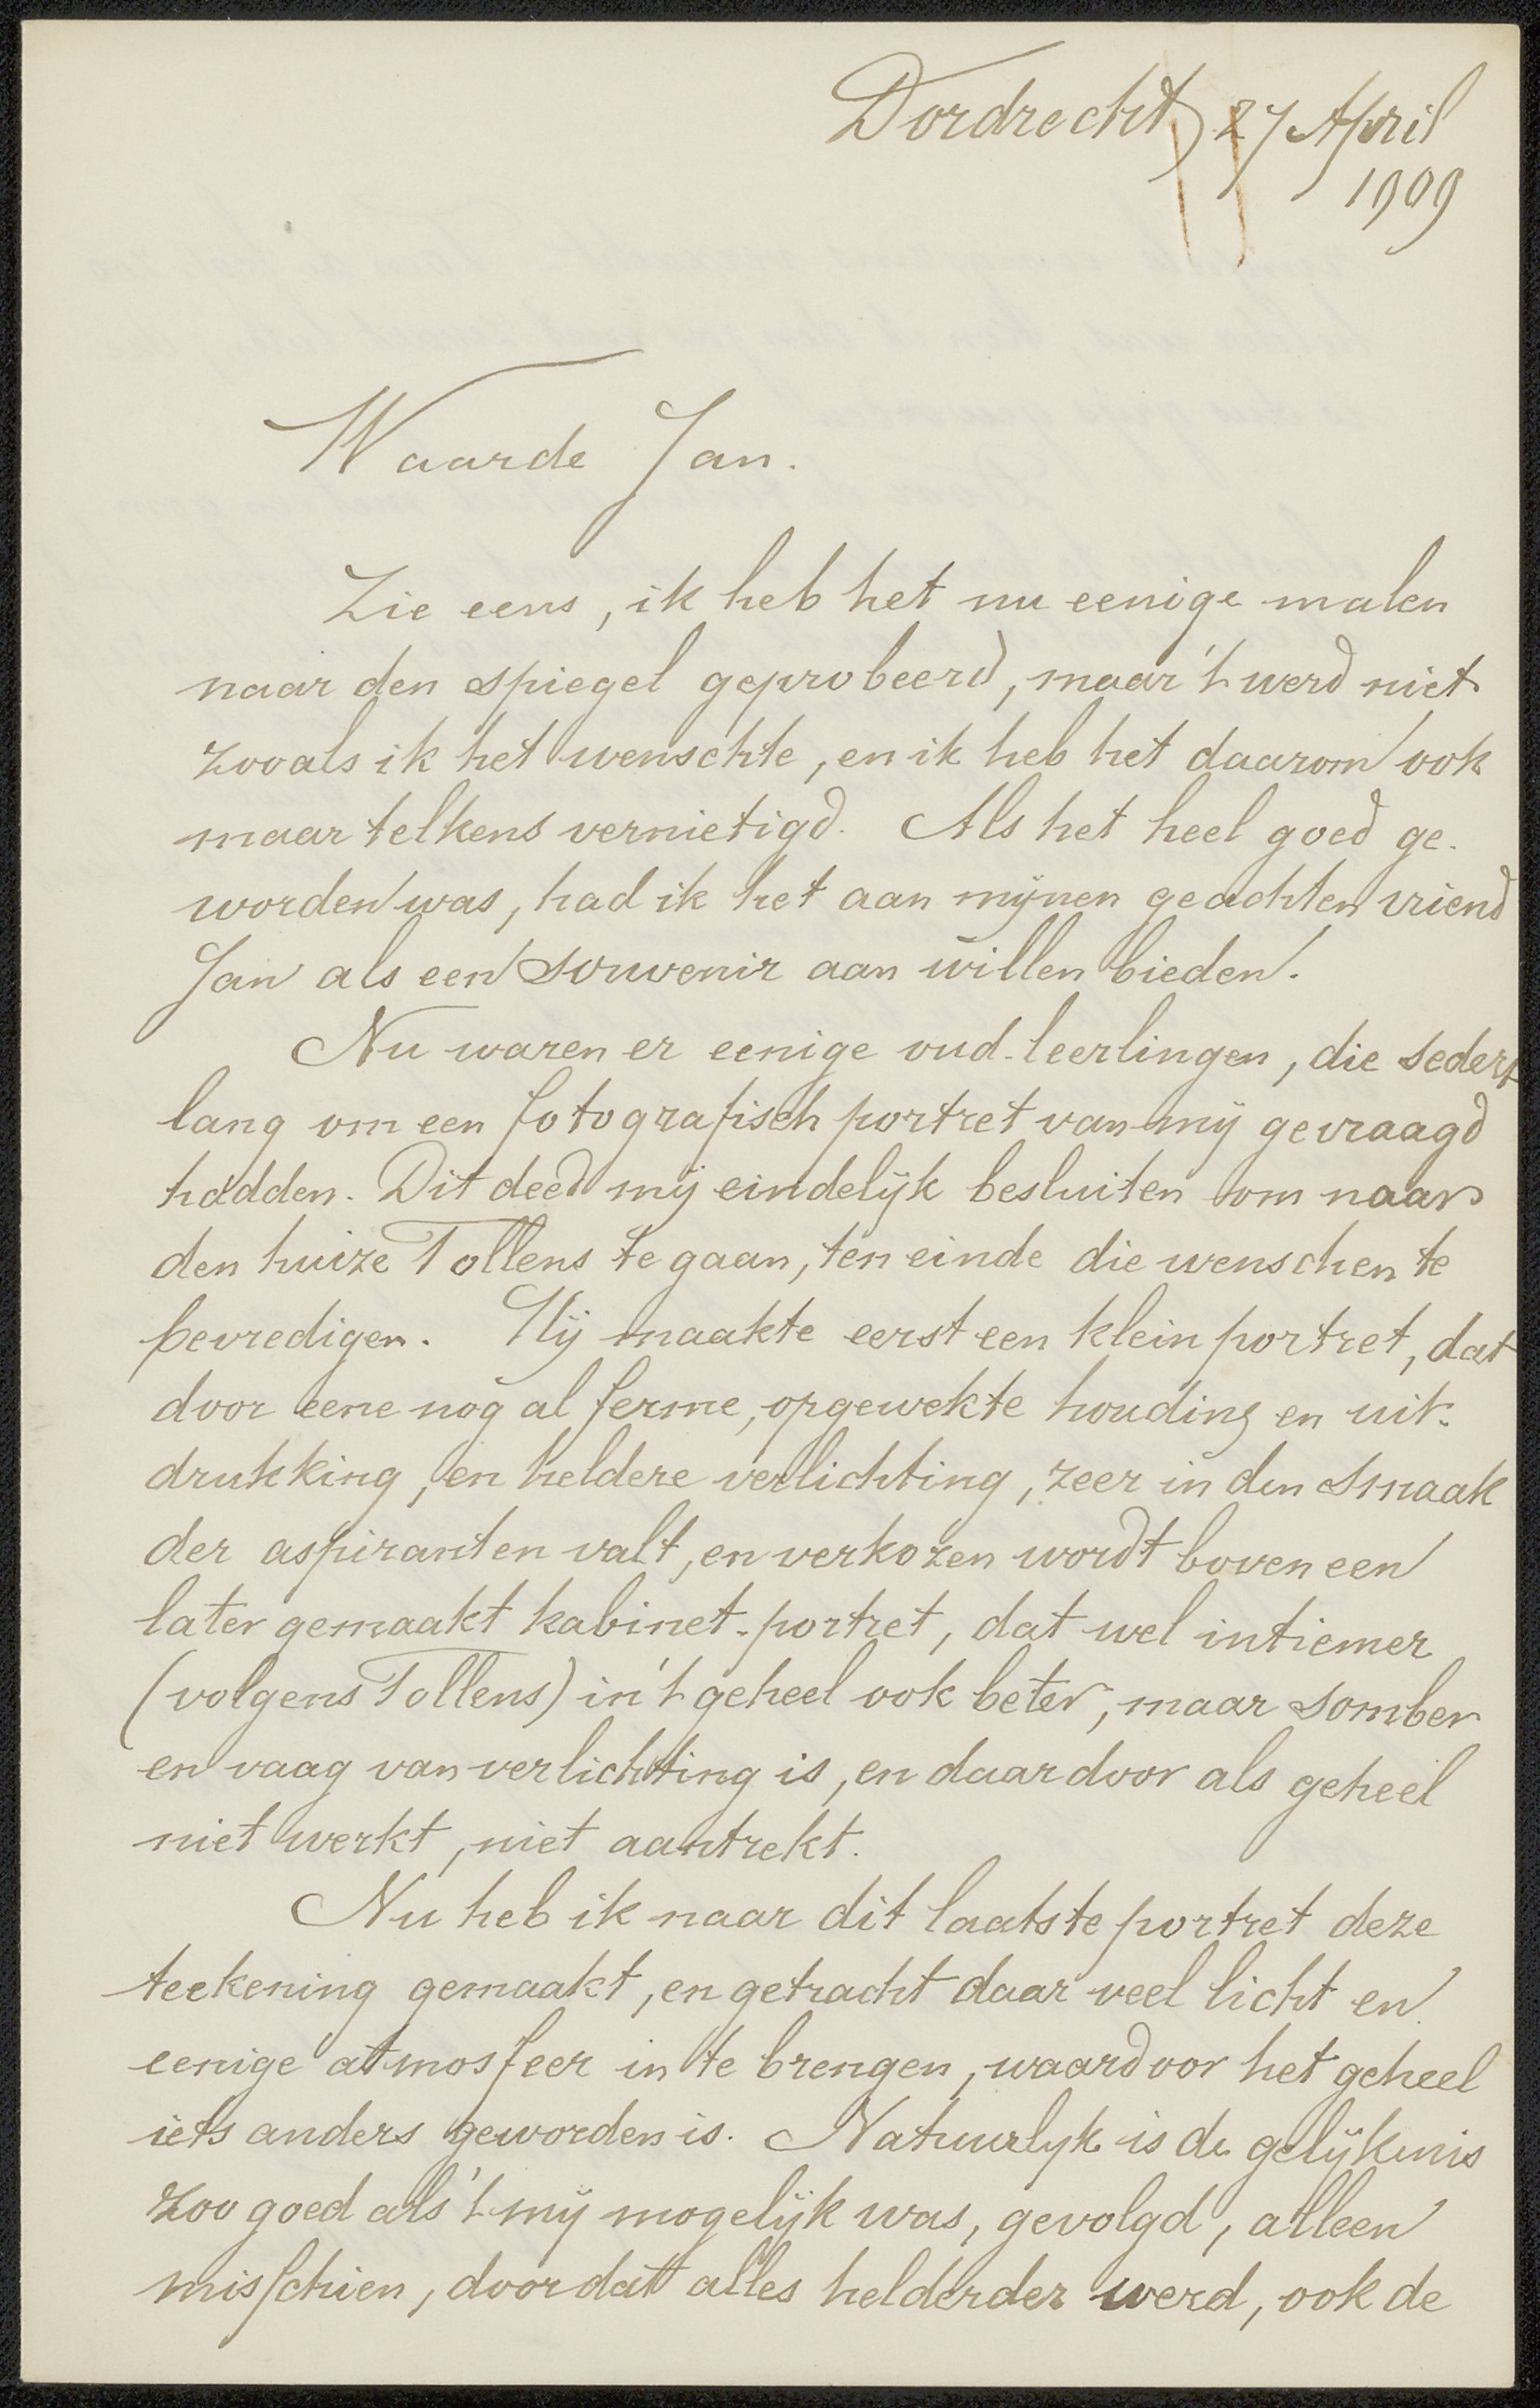 Dordrecht, 27 April
1909
Waarde Jan.
Zie eens, ik heb het nu eenige malen
naar den spiegel geprobeerd, maar 't werd niet
zooals ik het wenschte, en ik heb het daarom ook
maar telkens vernietigd. Als het heel goed ge-
worden was, had ik het aan mijnen geachten vriend
Jan als een souvenir aan willen bieden.
Nu waren er eenige oud-leerlingen, die sedert
lang om een fotografisch portret van mij gevraagd
hadden. Dit deed mij eindelijk besluiten om naar
den huize Tollens te gaan, ten einde die wenschen te
bevredigen. Hij maakte eerst een klein portret, dat
door eene nog al ferme, opgewekte houding en uit-
drukking, en heldere verlichting, zeer in den smaak
der aspiranten valt, en verkozen wordt boven een
later gemaakt kabinet-portret, dat wel intiemer
(volgens Tollens) in 't geheel ook beter, maar somber
en vaag van verlichting is, en daardoor als geheel
niet werkt, niet aantrekt.
Nu heb ik naar dit laatste portret deze
teekening gemaakt, en getracht daar veel licht en
eenige atmosfeer in te brengen, waardoor het geheel
iets anders geworden is. Natuurlijk is de gelijkenis
zoo goed als 't mij mogelijk was, gevolgd, alleen
misschien, doordat alles helderder werd, ook de